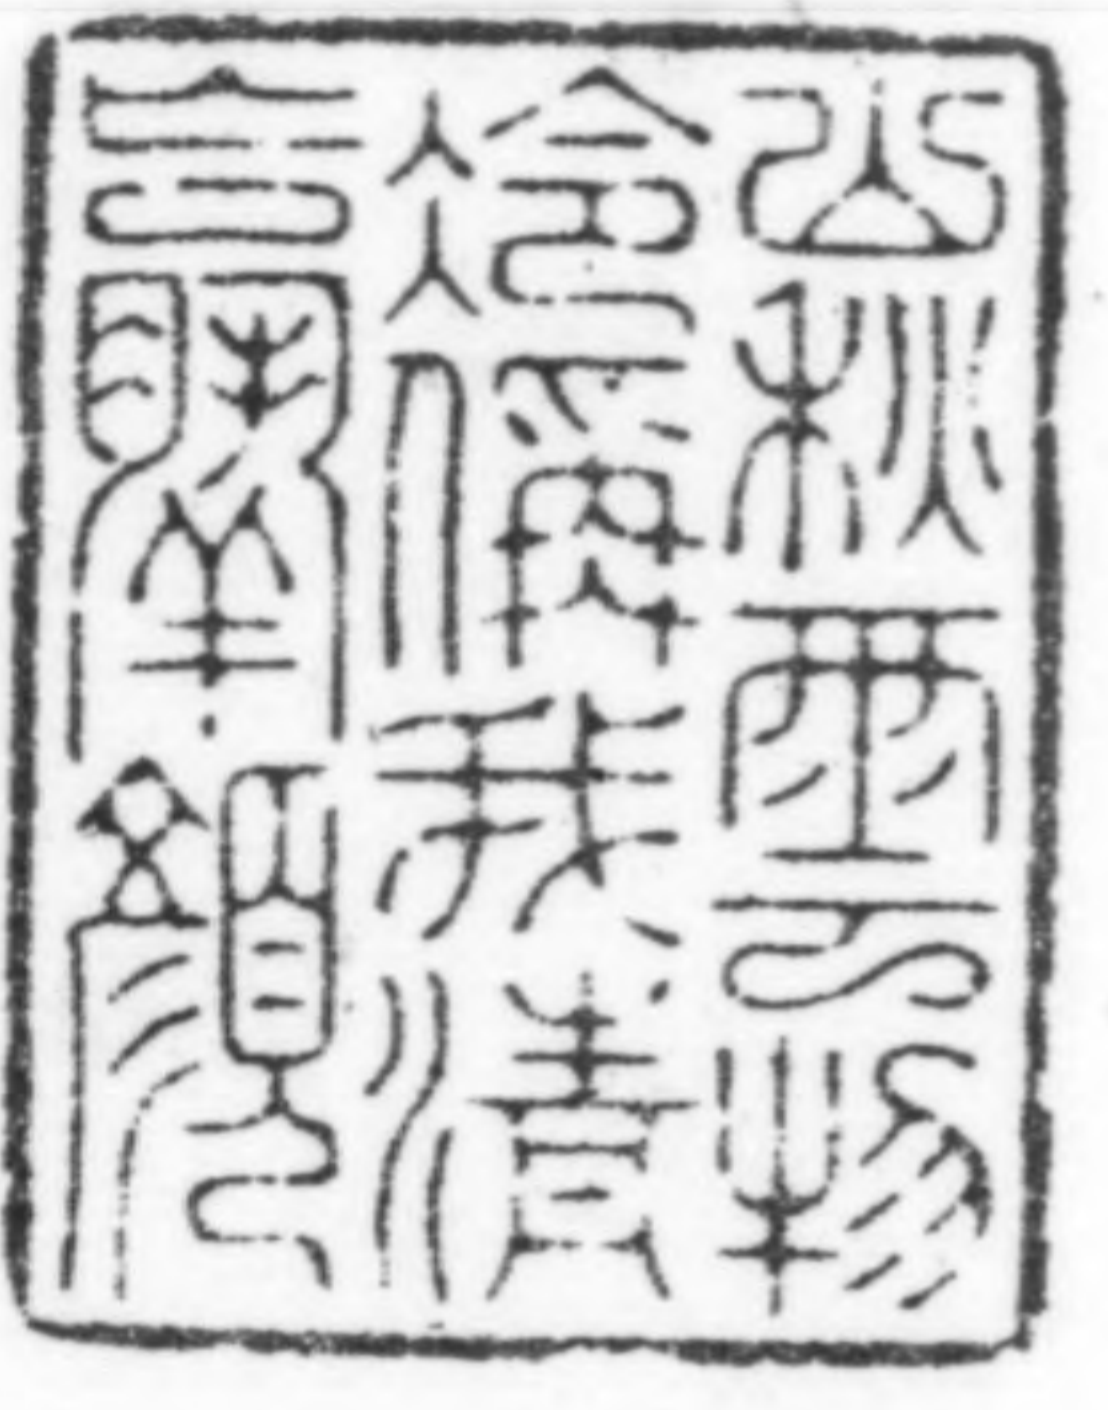 山秋雲物
冷偁我清
羸顏